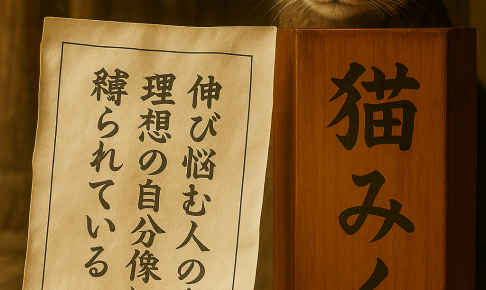 伸び悩む人の
理想の自分像
縛られている
猫み